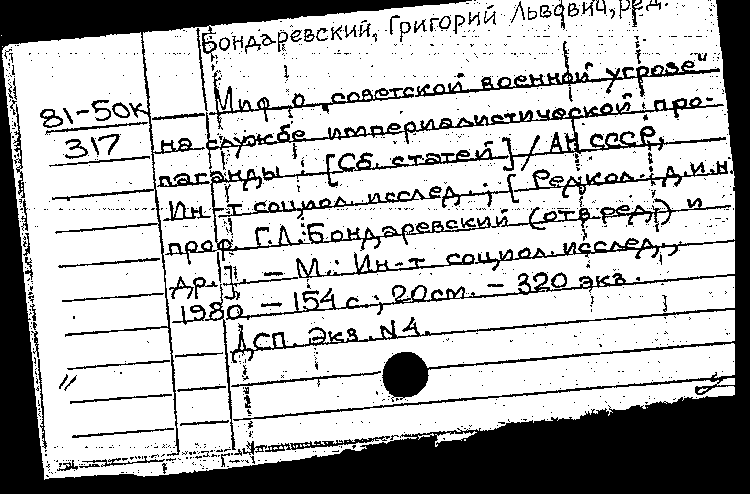 Бондаревский, Григорий Львович, ред.
81-50к
317
Миф о „советской военной угрозе"
на службе империалистической про-
паганды : [Сб. статей] / АН СССР,
Ин-т социол. исслед. ; [Редкол.: д.и.н.
проф. Г.Л. Бондаревский (отв. ред.) и
др.]. – М.: Ин-т социол. исслед.,
1980. – 154 с.; 20 см. – 320 экз.
ДСП. Экз. N 4.